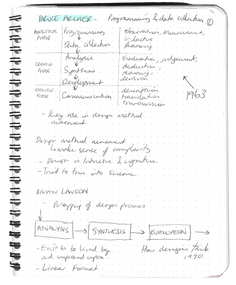 BRUCE ARCHER - Programming & data collection ①
ANALYTICAL PHASE
Programming
Data collection
Observation, Measurement, inductive reasoning
CREATIVE PHASE
Analysis
Synthesis
Development
Evaluation, Judgement, deductive reasoning, decision
EXECUTIVE PHASE
Communication
description
translation
transmission
1963
- Key role in design method movement
Design method movement
- make sense of complexity
- Design is Intuitive & cognitive
- Tried to turn into science
BRYAN LAWSON
- Mapping of design process
ANALYSIS → SYNTHESIS → EVALUATION →
- to be
and improved upon
- Linear Format
How designers think
1990